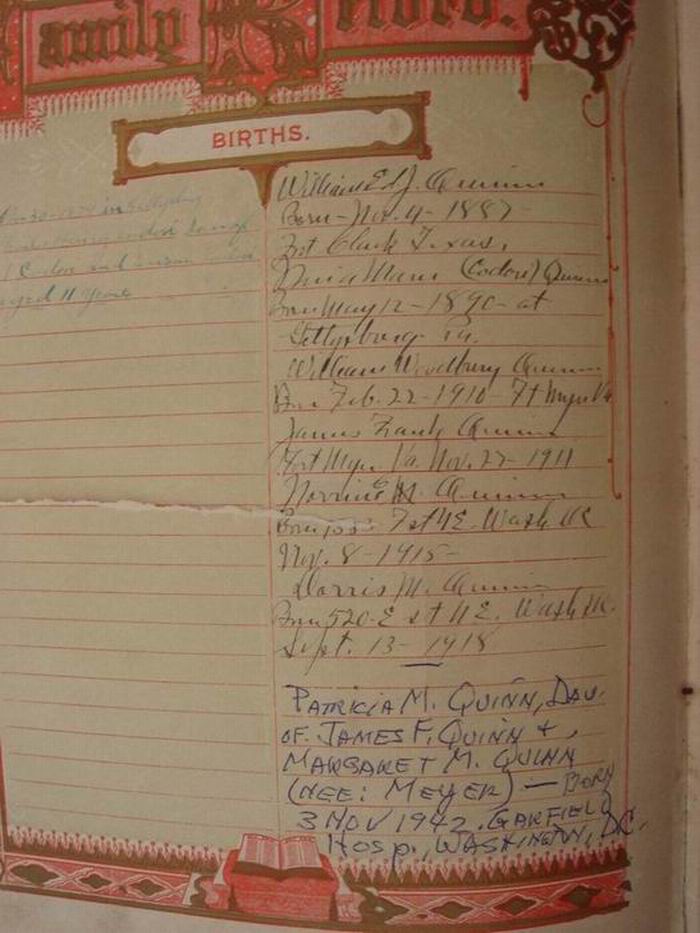 Family Record.
BIRTHS.
aged 11 years
William Ed J. Quinn
Born - Nov. 4 - 1887
Fort Clark Texas.
Marie (Codori) Quinn
Born May 12 - 1890 - at
Gettysburg Pa.
William Woodbury Quinn
Born Feb. 22 - 1910 - Ft Myer Va
James Frank Quinn
Fort Myer Va. Nov. 27 - 1911
Norrine M. Quinn
Born 7 st N.E. Wash DC
Nov. 8 - 1915 -
Dorris M. Quinn
Born 520 - E st N E. Wash DC.
Sept. 13 - 1918
PATRICIA M. QUINN, DAU.
OF JAMES F. QUINN +
MARGARET M. QUINN
(NEE: MEYER) — BORN
3 NOV 1942. GARFIELD
HOSP., WASHINGTON, D.C.